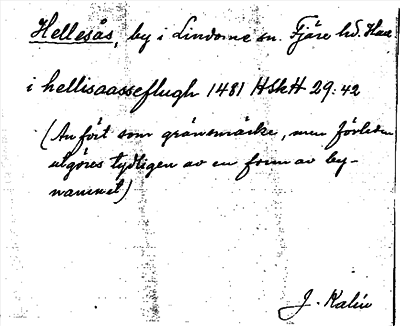 Hellesås, by i Lindome sn. Fjäre hd. Hall
i hellisaasseflugh 1481 HSkH 29:42
(Anfört som gränsmärke, men förleden
utgöres tydligen av en form av by-
namnet)
J. Kalén